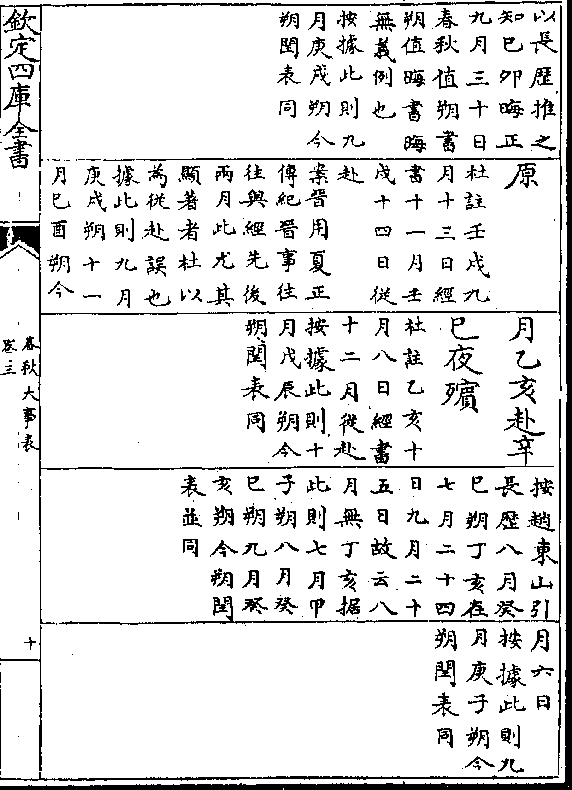 以長歷推之
知巳卯晦正
九月三十日
春秋值朔書
朔值晦書晦
無義例也
按據此則九
月庚戌朔今
朔閏表同
原
杜註壬戌九
月十三日經
書十一月壬
戌十四日從
赴
案晉用夏正
傳紀晉事往
往與經先後
兩月此尤其
顯著者杜以
為從赴誤也
據此則九月
庚戌朔十一
月巳酉朔今
月乙亥赴辛
巳夜殯
杜註乙亥十
月八日經書
十二月從赴
按據此則十
月戊辰朔今
朔閏表同
按趙東山引
長歷八月癸
巳朔丁亥在
七月二十四
日九月二十
五日故云八
月無丁亥据
此則七月甲
子朔八月癸
巳朔九月癸
亥朔今朔閏
表並同
月六日
按據此則九
月庚子朔今
朔閏表同
欽定四庫全書
春秋大事表
卷三
十